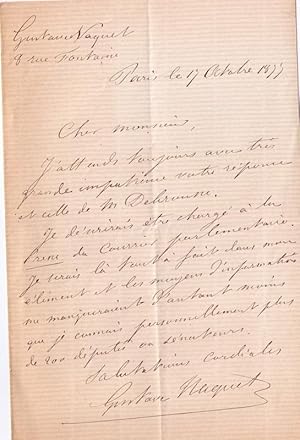 Gustave Naquet
8 rue Fontaine
Paris le 17 Octobre 1877
Cher monsieur,
J'attends toujours avec très
grande impatience votre réponse
et celle de M Debrousse.
Je désirerais être chargé à la
du Courrier parlementaire.
Je serais là tout à fait dans mon
élément et les moyens d'information
me manqueraient d'autant moins
que je connais personnellement plus
de 200 députés ou sénateurs.
Salutations cordiales
Gustave Naquet